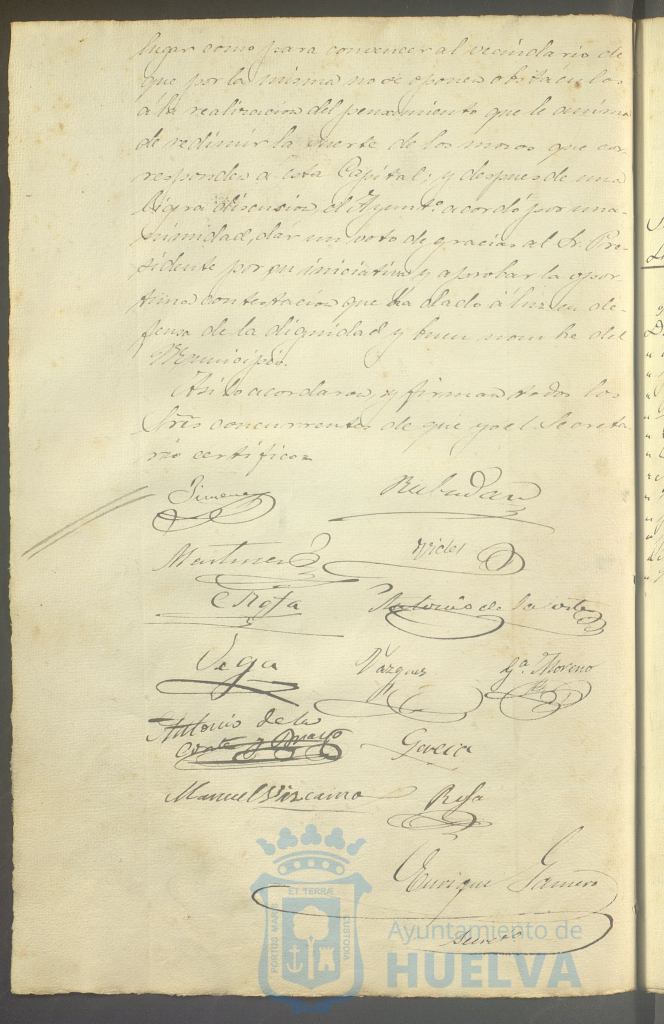 lugar como para convencer al vecindario de
que por la misma no se oponen obstaculos
á la realizacion del pensamiento que le anima
de redimir la suerte de los mozos que cor-
responden á esta Capital; y despues de una
ligera discusion, el Ayuntº acordó por una-
nimidad, dar un voto de gracias al Sr. Pre-
sidente por su iniciativa y aprobar la opor-
tuna contestacion que ha dado á luz en de-
fensa de la dignidad y buen nombre del
Municipio.
Asi lo acordaron, y firman todos los
Sres concurrentes de que yo el Secreta-
rio certifico=
Jimenez
Martinez
Vides
C Rosa
Antonio de la Corte
Vega
Vazquez
Gª. Moreno
Antonio de la
Corte y Bravo
Garcia
Manuel Vizcaino
Rosa
Enrique Gamero
Secreto
ET TERRÆ
PORTUS MARIS
CUSTODIA
Ayuntamiento de
HUELVA